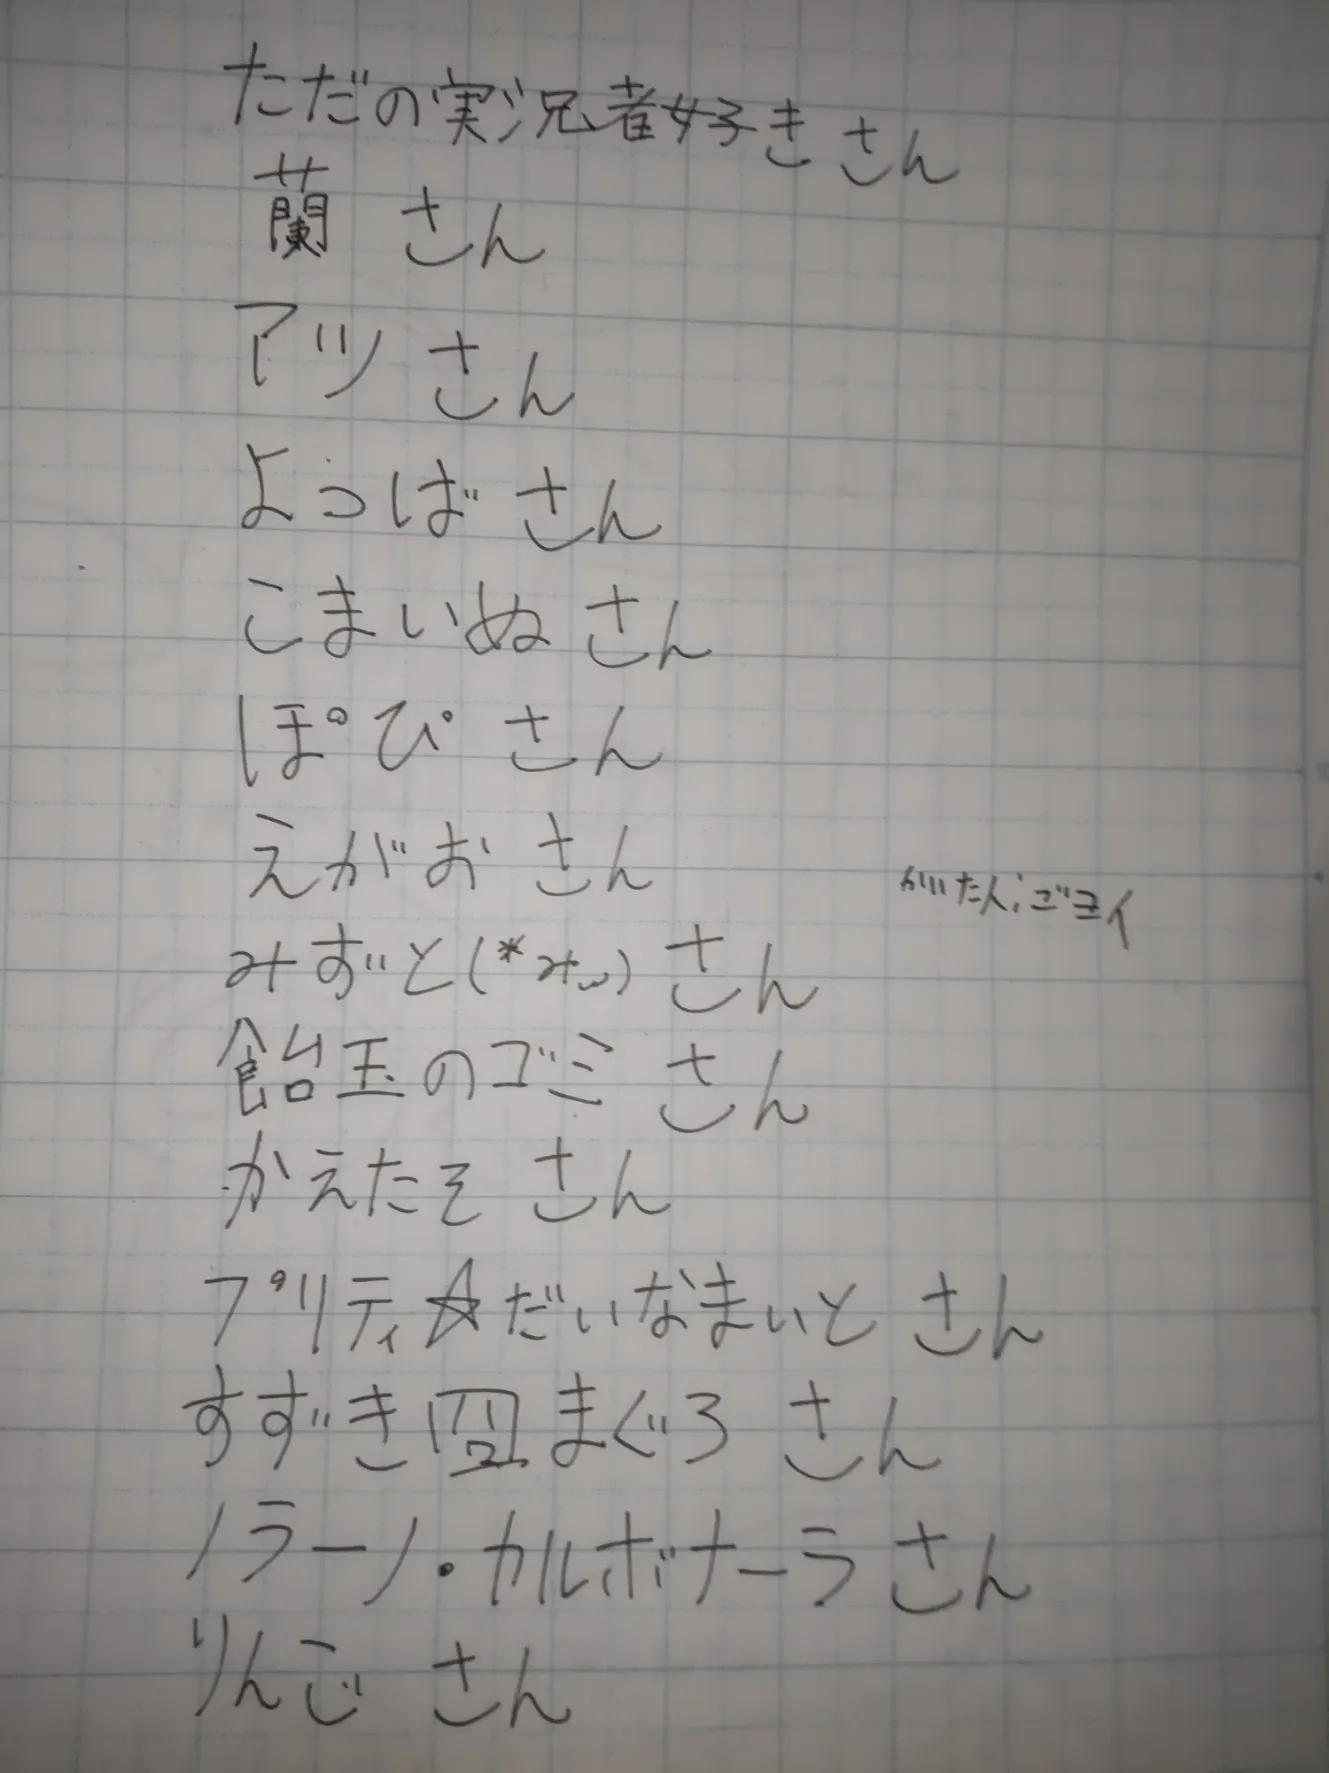 ただの実況者好き さん
蘭 さん
アツ さん
よつば さん
こまいぬ さん
ぽぴ さん
えがお さん
みずと(*みω) さん
飴玉のゴミ さん
かえたそ さん
プリティ☆だいなまいと さん
すずき まぐろ さん
ノラーノ・カルボナーラ さん
りんご さん